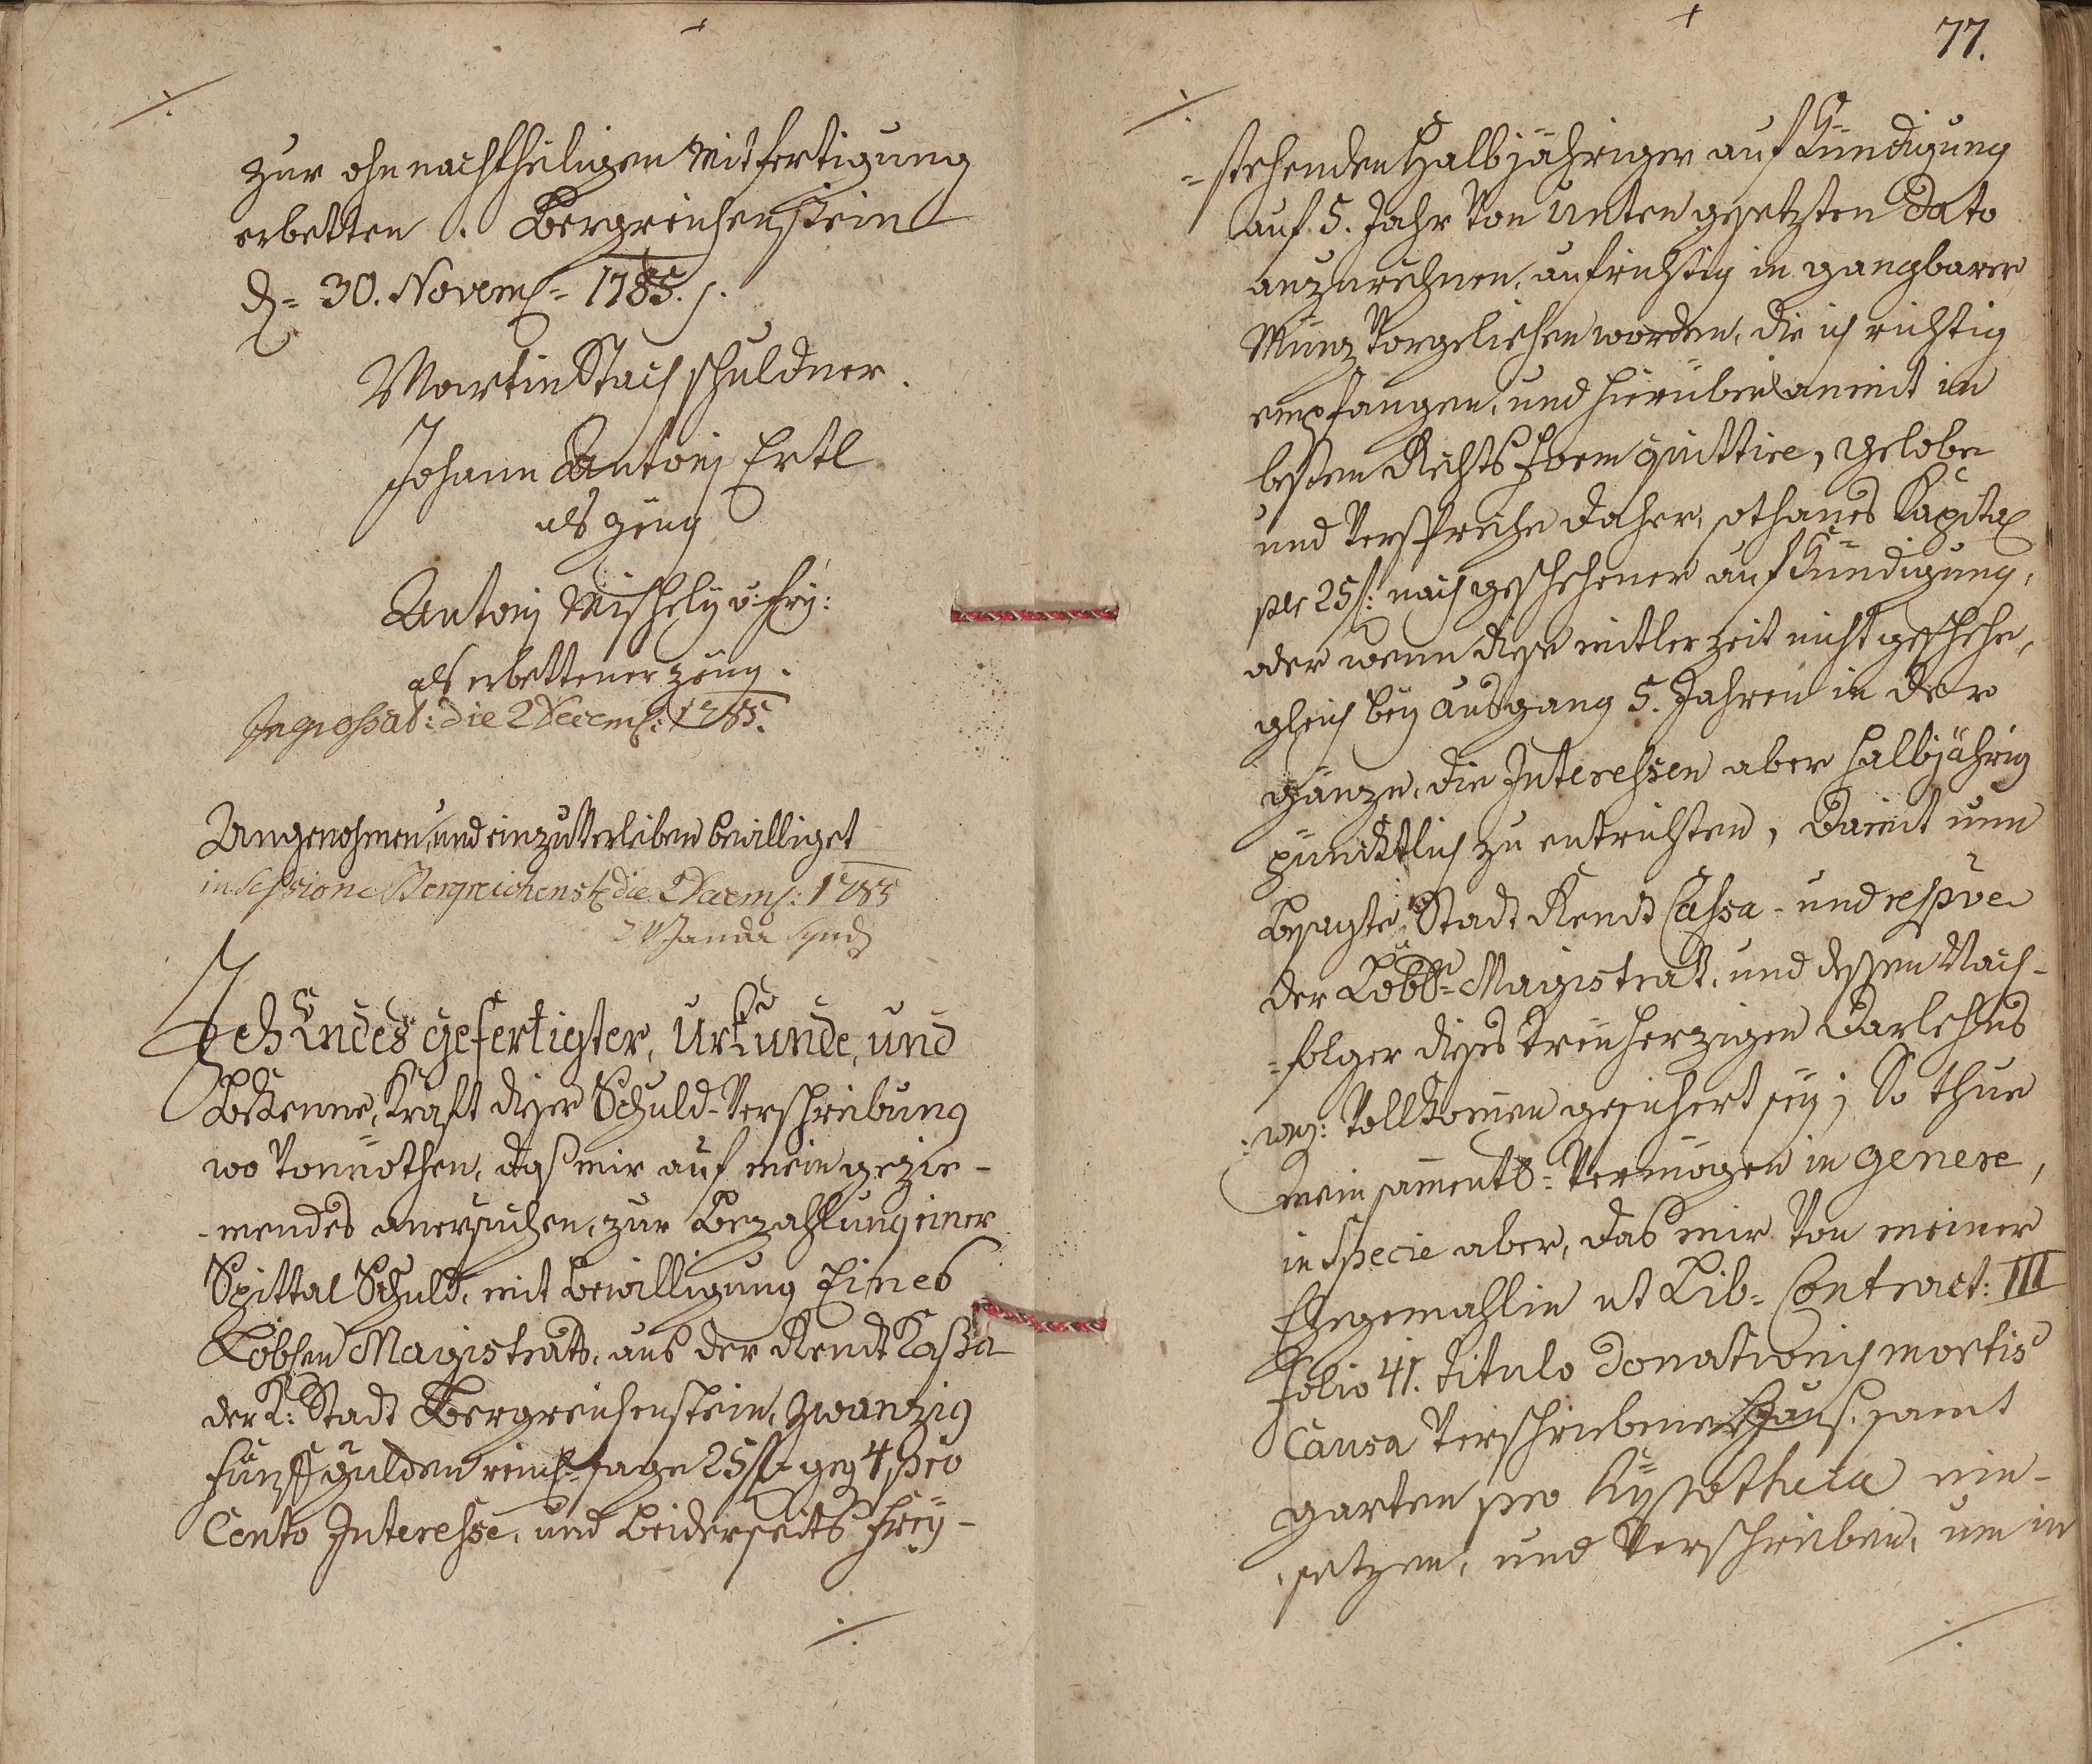 zur ohnnachtheiligen Mitfertigung
erbetten. Bergreichenstein
d= 30. Novemb= 1785.
Martin Stach Schuldner.
Johann Antonj Ertl
als Zeug
Antonj
als erbettener Zeug.
Ingrossat: die 2 Decemb: 1785.
Angenohmen, und einzuverleiben bewilliget
in Sessione Bergreichenst die 2 Decemb: 1785
Janda Synd
Ich Endes gefertigter, Urkunde, und
Bekenne, Kraft dieser Schuld-Verschreibung
wo vonnöthen, daß mir auf mein gezie-
-mendes anersuchen, zur Bezahlung einer
Spittal Schuld, mit bewilligung Eines
Löbhen Magistrats, aus der Rendt Kaßa
der K: Stadt Bergreichenstein, zwanzig
fünff gulden reinl= sage 25 f= geg 4 pro
Cento Interesse, und beiderseits frey-
77.
=stehenden Halbjähriger aufkündigung
auf 5. Jahr von unten gesetzten dato
anzurechnen, aufrichtig in gangbarer
Münz vorgeliehen worden, die ich richtig
empfangen, und hierüber anmit in
besten Rechts Form quittire, gelobe
und verspreche daher, sothanes Kapital
per 25 f: nach geschehener aufkündigung,
oder wenn diese mitler zeit nicht geschehe,
gleich bey ausgang 5. Jahren in der
gänze, die Interessen aber halbjährig
puncktlich zu entrichten, Damit nun
besagte Stadt Rendt Cassa- und respve
der Löbl= Magistrat, und dessen Nach-
=folger dieses treuherzigen Darlehns
weg: vollkomen gesichert sey; So thue
mein samentl= Vermögen in genere,
in specie aber, das mir von meiner
Ehegemahlin ut Lib= Contract: III
folio 41. titulo donationis mortis
Causa verschriebene Hauß, samt
garten pro Hypotheca ein-
setzen, und verschreiben, um in